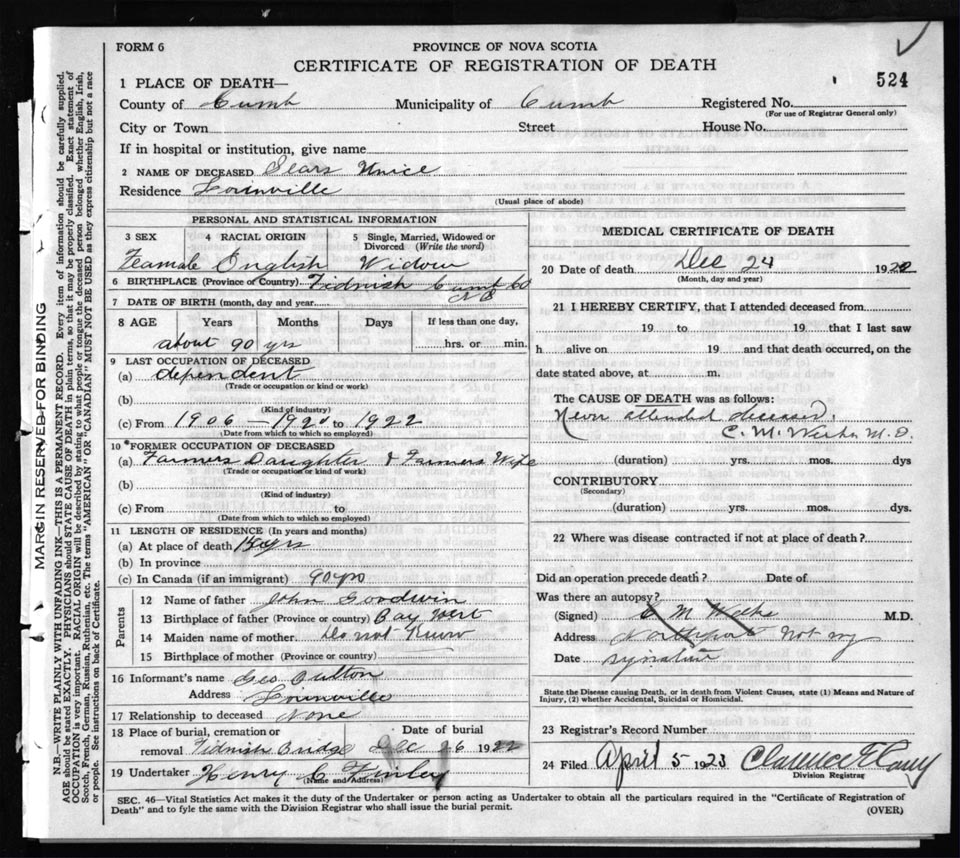 FORM 6
PROVINCE OF NOVA SCOTIA
CERTIFICATE OF REGISTRATION OF DEATH
524
1 PLACE OF DEATH—
County of Cumb Municipality of Cumb Registered No.
(For use of Registrar General only)
City or Town Street House No.
If in hospital or institution, give name
2 NAME OF DECEASED Sears Unice
Residence Lorneville
(Usual place of abode)
PERSONAL AND STATISTICAL INFORMATION
3 SEX 4 RACIAL ORIGIN 5 Single, Married, Widowed or Divorced (Write the word)
Feamale English Widow
6 BIRTHPLACE (Province or Country) Tidnish Cumb Co
N S
7 DATE OF BIRTH (month, day and year)
8 AGE Years Months Days If less than one day,
about 90 yrs hrs. or min.
9 LAST OCCUPATION OF DECEASED
(a) dependent
(Trade or occupation or kind or work)
(b)
(Kind of industry)
(c) From 1906 — 1920 to 1922
(Date from which to which so employed)
10 *FORMER OCCUPATION OF DECEASED
(a) Farmers Daughter & Farmers Wife
(Trade or occupation or kind of work)
(b)
(Kind of industry)
(c) From to
(Date from which to which so employed)
11 LENGTH OF RESIDENCE (In years and months)
(a) At place of death 15 yrs
(b) In province
(c) In Canada (if an immigrant) 90 yrs
Parents
12 Name of father John Goodwin
13 Birthplace of father (Province or country) Bay Vert
14 Maiden name of mother Do not Know
15 Birthplace of mother (Province or country)
16 Informant's name Geo Oulton
Address Lorneville
17 Relationship to deceased None
18 Place of burial, cremation or removal Date of burial
Tidnish Bridge Dec 26 1922
19 Undertaker Henry C Finley
(Name and Address)
MEDICAL CERTIFICATE OF DEATH
20 Date of death Dec 24 1922
(Month, day and year)
21 I HEREBY CERTIFY, that I attended deceased from
19 to 19 that I last saw
h alive on 19 and that death occurred, on the
date stated above, at m.
The CAUSE OF DEATH was as follows:
Never attended deceased.
C. M. Weeks M. D.
(duration) yrs. mos. dys
CONTRIBUTORY
(Secondary)
(duration) yrs. mos. dys.
22 Where was disease contracted if not at place of death?
Did an operation precede death? Date of
Was there an autopsy?
(Signed) C M Weeks M.D.
Address Northport Not my
Date signature
State the Disease causing Death, or in death from Violent Causes, state (1) Means and Nature of
Injury, (2) whether Accidental, Suicidal or Homicidal.
23 Registrar's Record Number
24 Filed April 5 1923 Clarence E
Division Registrar
SEC. 46—Vital Statistics Act makes it the duty of the Undertaker or person acting as Undertaker to obtain all the particulars required in the "Certificate of Registration of
Death" and to fyle the same with the Division Registrar who shall issue the burial permit.
(OVER)
MARGIN RESERVED FOR BINDING
N.B.—WRITE PLAINLY WITH UNFADING INK—THIS IS A PERMANENT RECORD. Every item of information should be carefully supplied.
AGE should be stated EXACTLY. PHYSICIANS should STATE CAUSE OF DEATH in plain terms, so that it may be properly classified. Exact statement of
OCCUPATION is very important. RACIAL ORIGIN will be described by stating to what people or tongue the deceased person belonged whether English, Irish,
Scotch, French, German, Russian, Ruthenian, etc. The terms "AMERICAN" or "CANADIAN" MUST NOT BE USED as they express citizenship but not a race
or people. See instructions on back of Certificate.